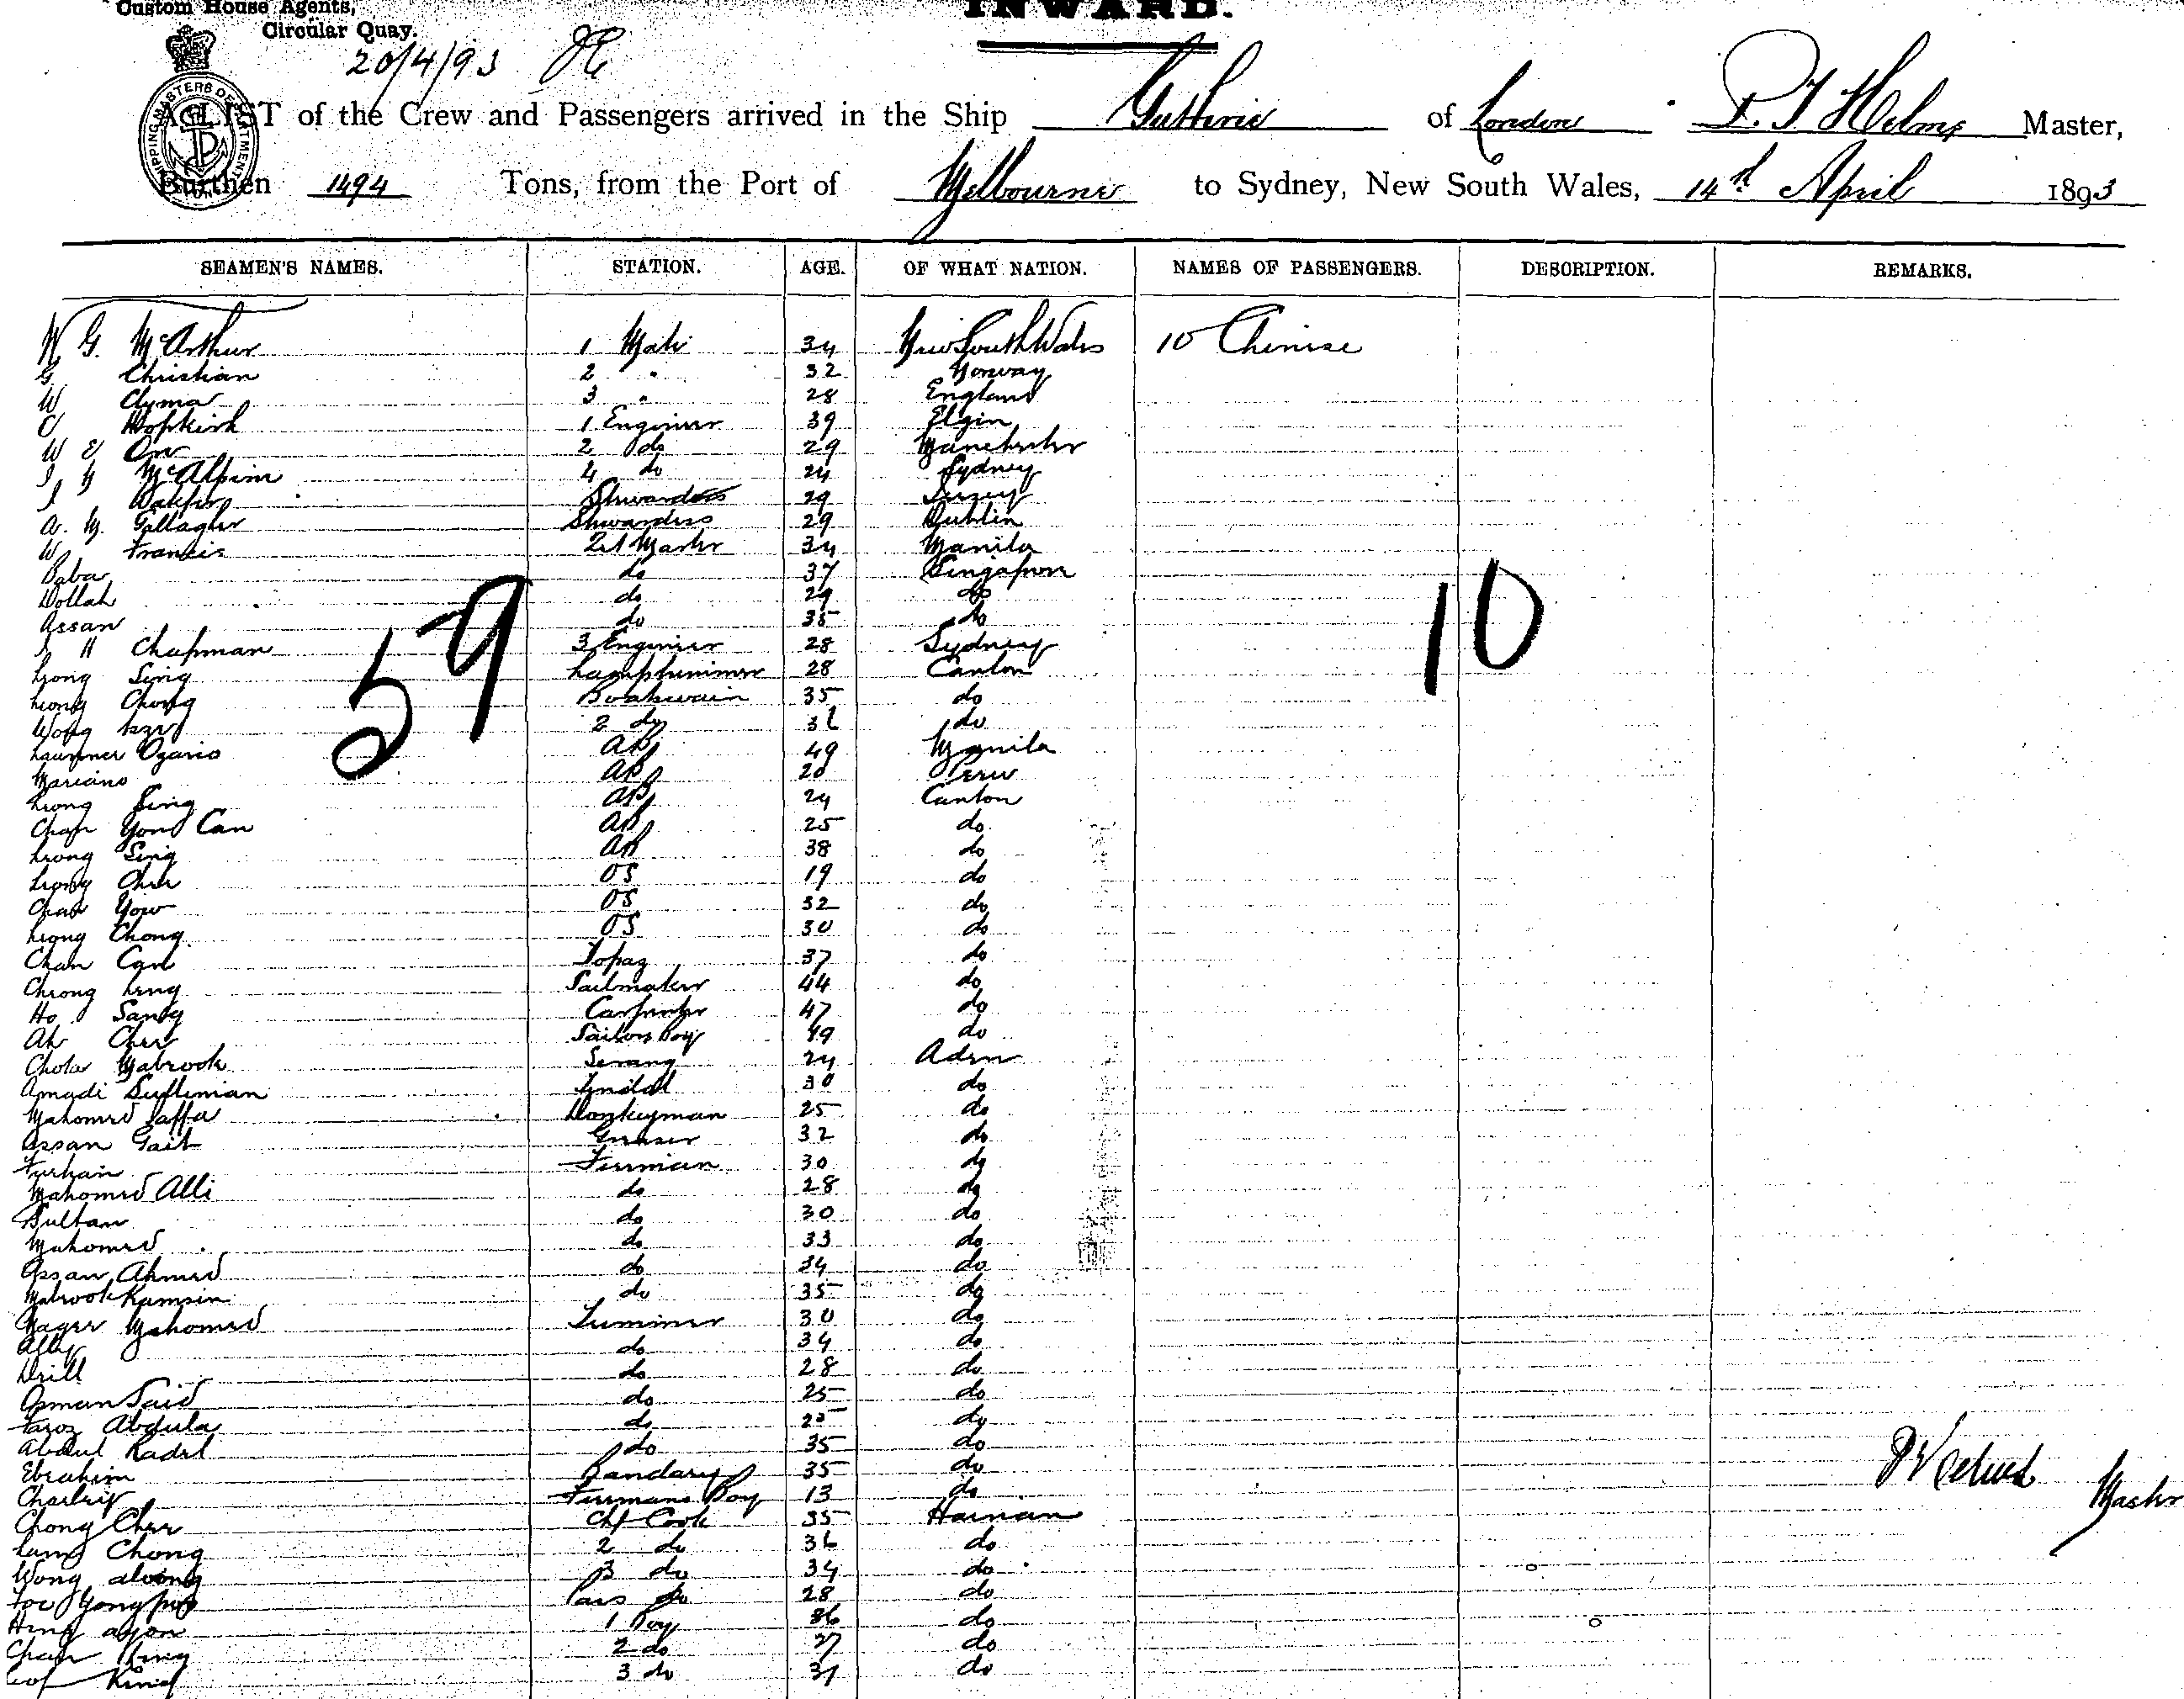 Custom House Agents,
Circular Quay.
INWARD.
20/4/93
SHIPPING MASTERS DEPARTMENT
A LIST of the Crew and Passengers arrived in the Ship Guthrie of London P. T. Helms Master,
Burthen 1494 Tons, from the Port of Melbourne to Sydney, New South Wales, 14th April 1893
SEAMEN'S NAMES. STATION. AGE. OF WHAT NATION. NAMES OF PASSENGERS. DESCRIPTION. REMARKS.
G. McArthur 1 Mate 34 New South Wales 10 Chinese
G. Christian 2 " 32 Norway
W Clyma 3 " 28 England
Hopkirk 1 Engineer 39 Elgin
W E Orr 2 do 29 Manchester
McAlpine 4 do 24 Sydney
29 Jersey
A. M. Gallagher Stewardess 29 Dublin
W Francis Master 34 Manila
Baba do 37 Singapore
Dollah do 29 do
Assan do 35 do
H Chapman 3 Engineer 28 Sydney
Leong Sing Lamptrimmer 28 Canton
Leong Chong Boatswain 35 do
Wong 2 do do
Ozario AB 49 Manila
Mariano AB 20 Peru
Leong Sing AB 24 Canton
Chan Yong Can AB 25 do
Leong Sing AB 38 do
Leong Chee OS 19 do
Chan Yow OS 32 do
Leong Chong OS 30 do
Chan Can Topaz 37 do
Cheong Leng Sailmaker 44 do
Ho Sandy Carpenter 47 do
Ah Chee Sailors Boy 19 do
Mabrook Serang 24 Aden
Amadi Sulliman Tindal 30 do
Mahomed Jaffa Donkeyman 25 do
Assan Gait Greaser 32 do
Furhan Fireman 30 do
Mahomed Alli do 28 do
Sultan do 30 do
Mahomed do 33 do
Assan Ahmed do 34 do
Mabrook Kamsin do 35 do
Nager Mahomed Trimmer 30 do
Ally do 34 do
Drill do 28 do
Osman Said do 25 do
Faroz Abdula do do
Abdul Kadel do 35 do
Ebrahim Bandary 35 do
Firemans Boy 13 do
Chong Chee Chf Cook 35 Hainan
Chong 2 do 36 do
Wong 3 do 34 do
Pars do 28 do
1 Boy 36 do
Chan 2 do 27 do
King 3 do 31 do
59
10
Master